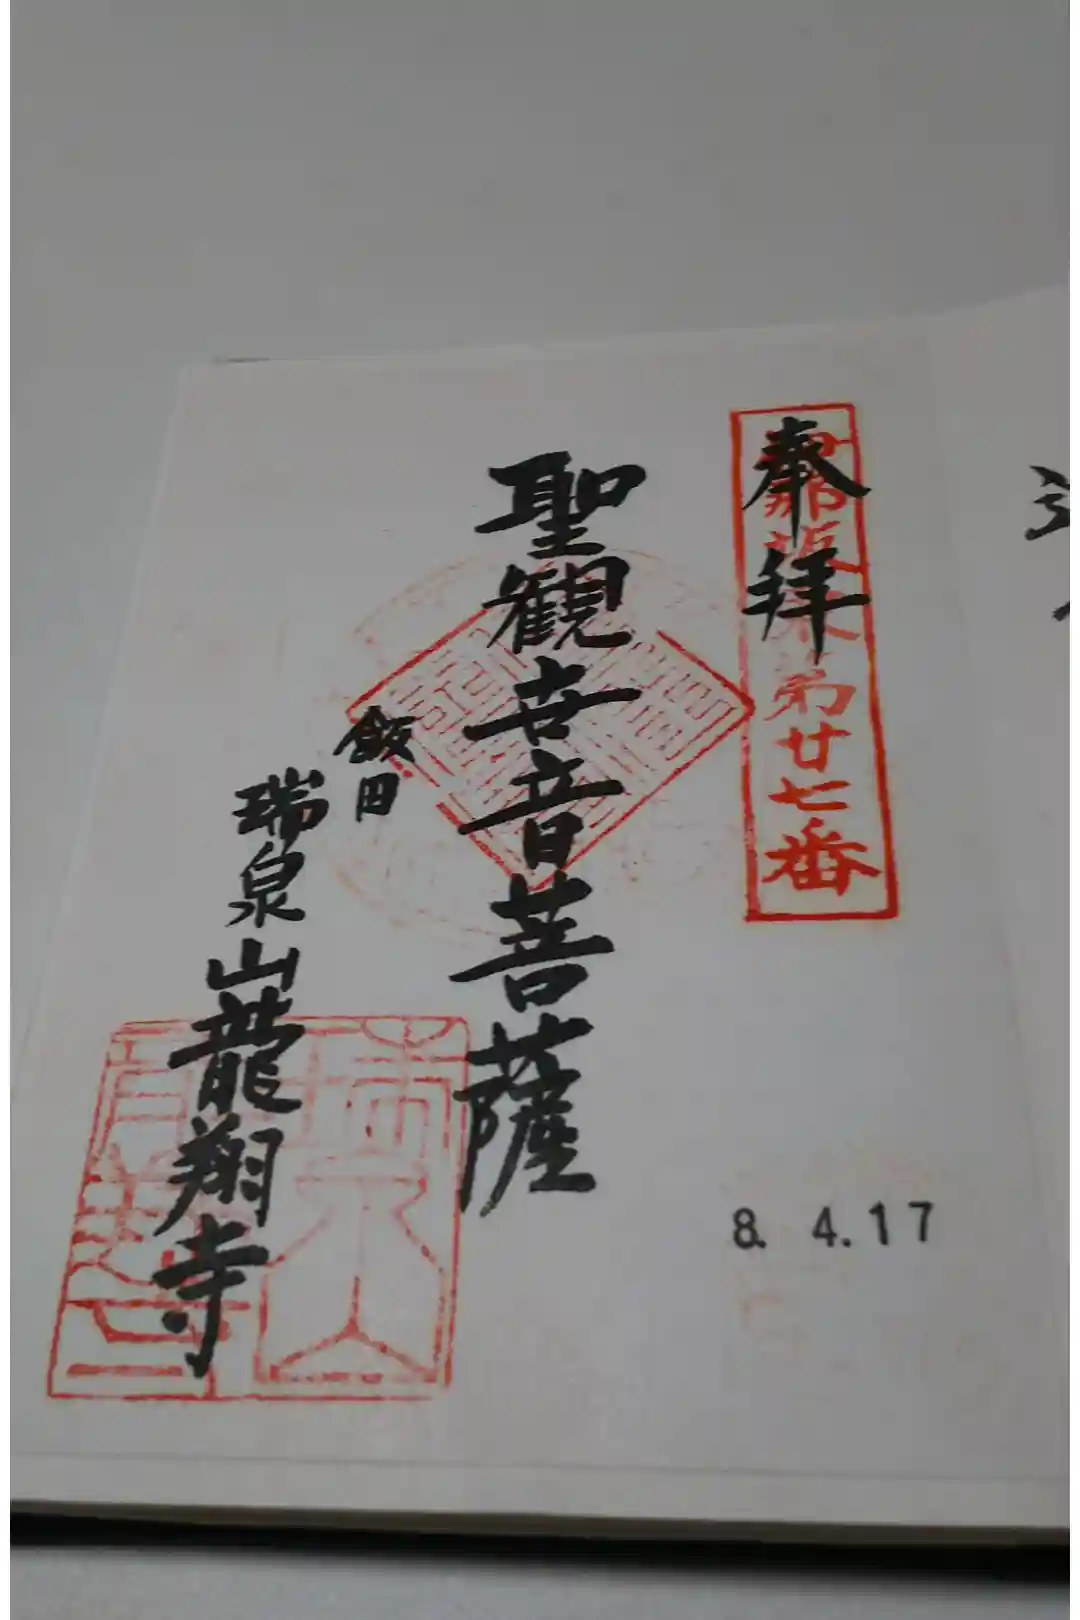 奉拝
第廿七番
聖観世音菩薩
飯田
瑞泉山龍翔寺
8. 4.17